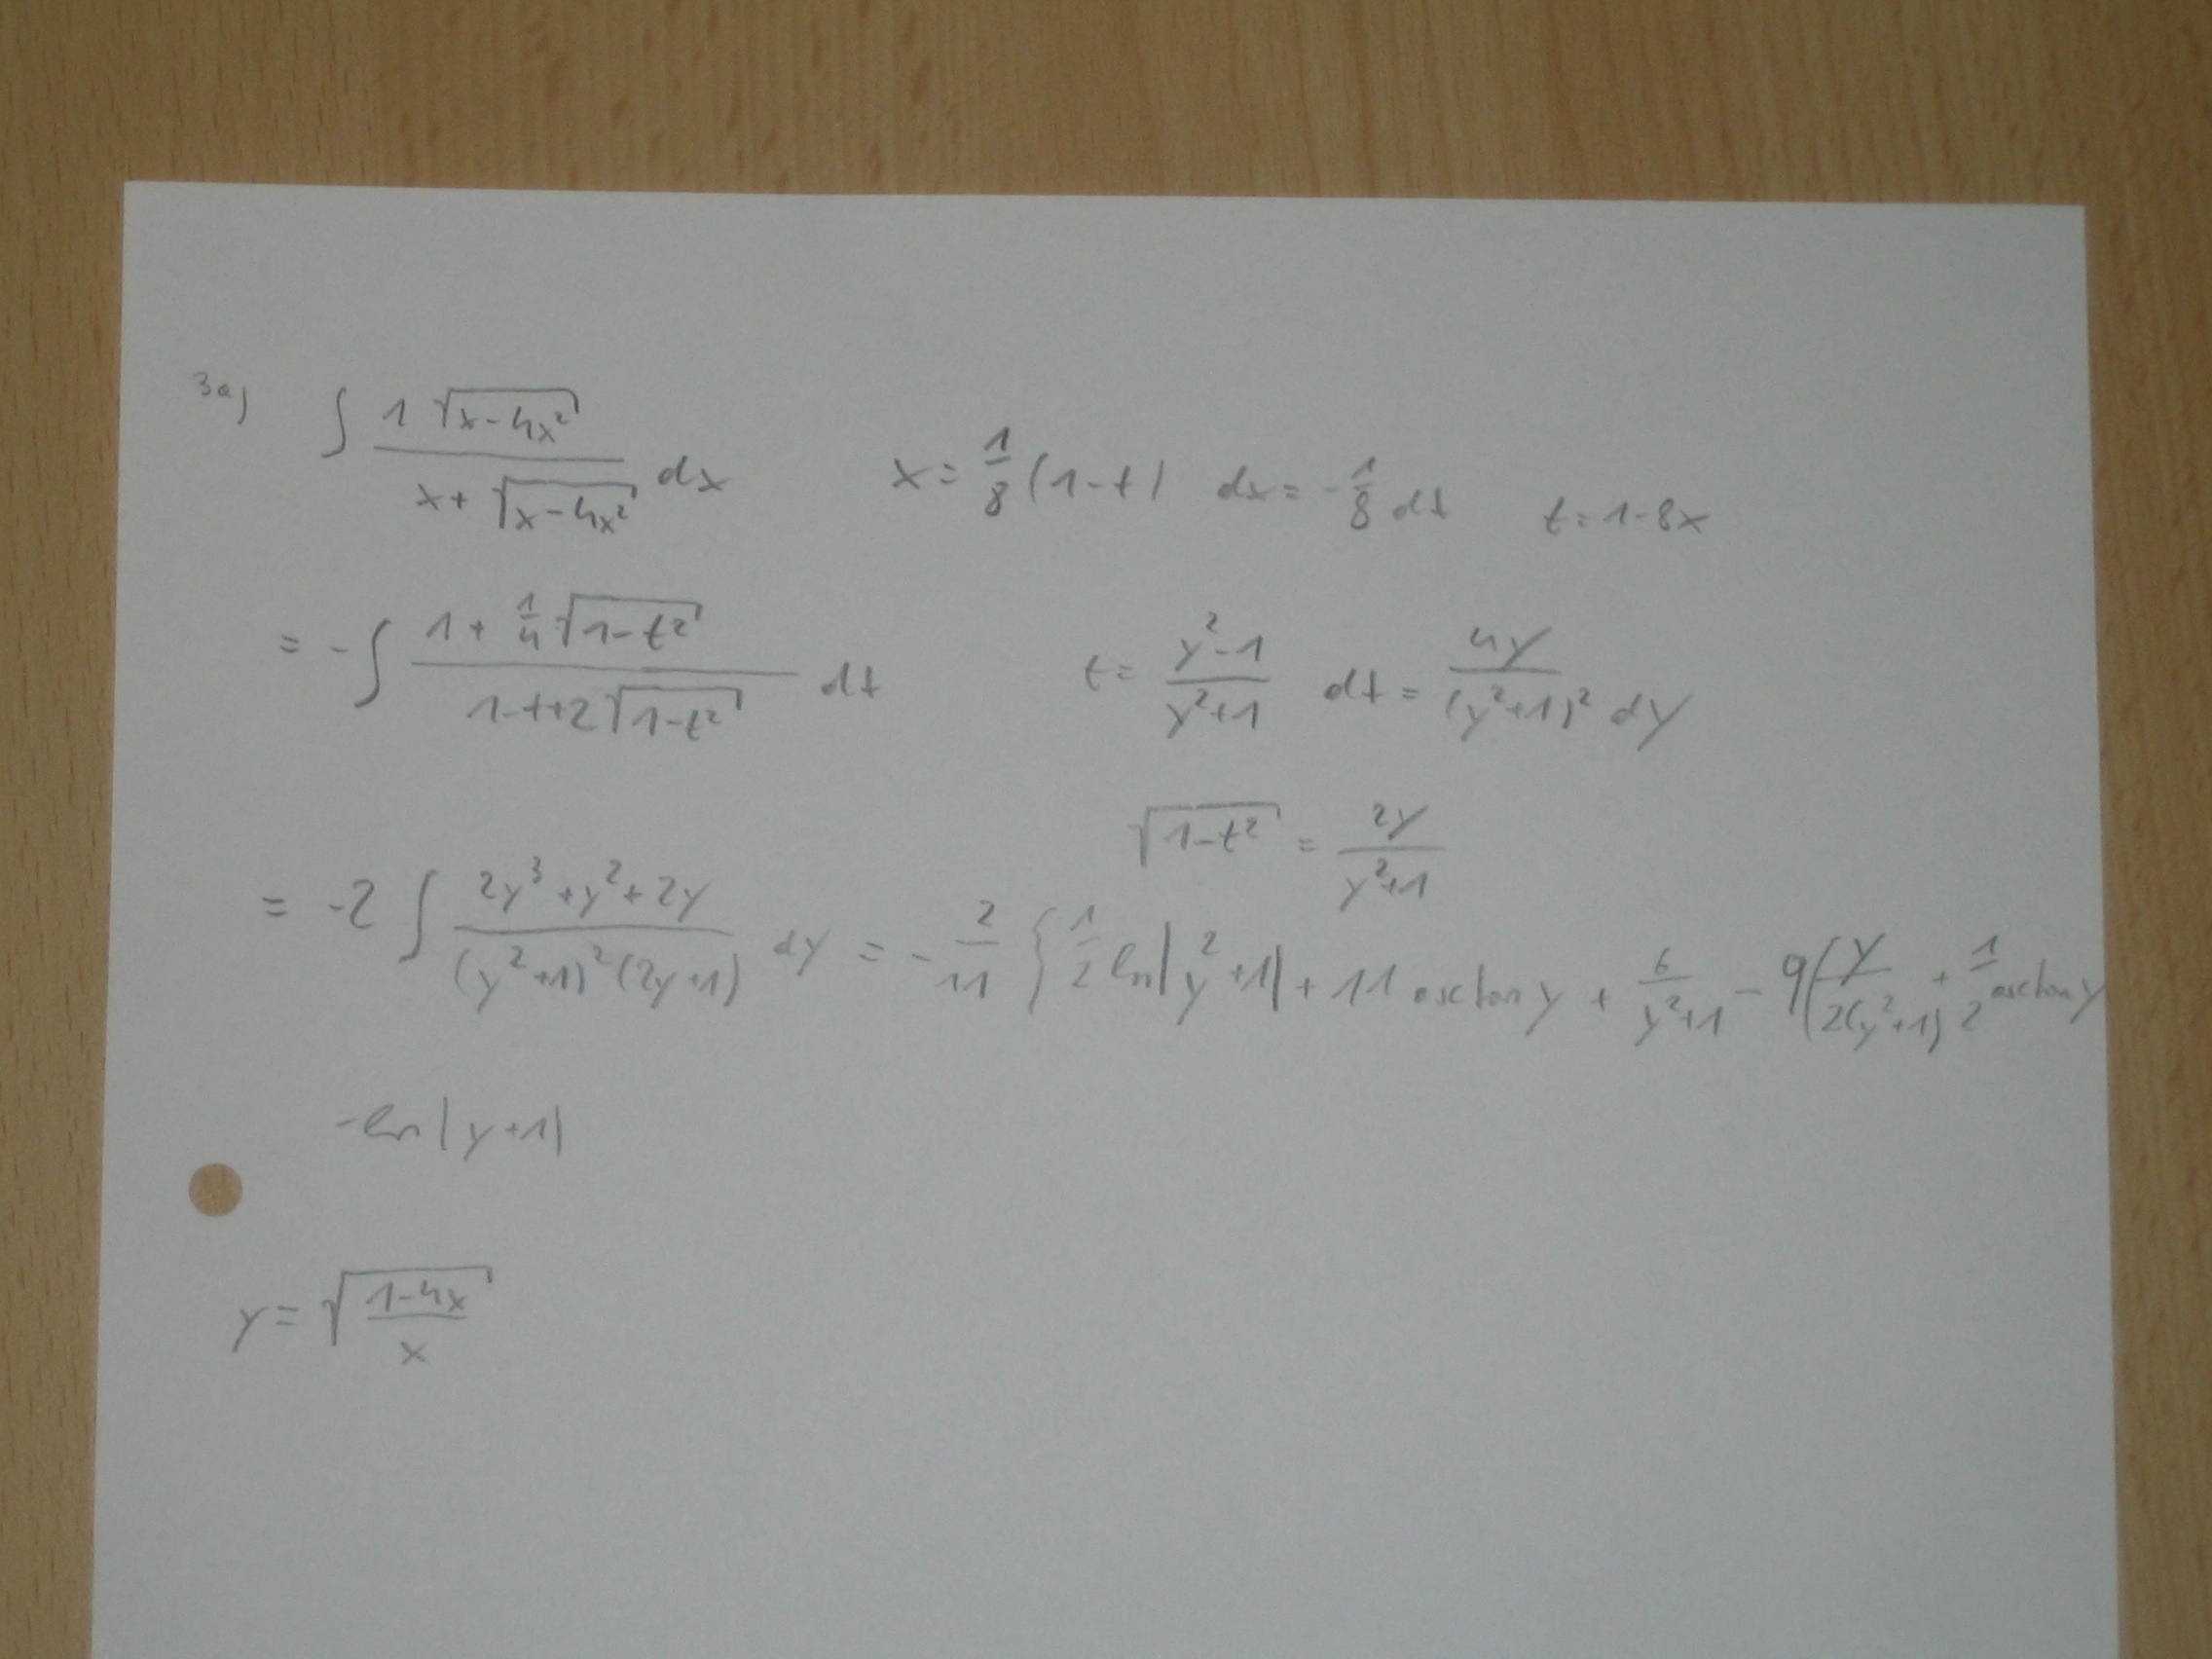 3a) ∫ (1 √(x-4x²))/(x+√(x-4x²)) dx x = 1/8 (1-t) dx = -1/8 dt t = 1-8x
= -∫ (1 + 1/4 √(1-t²))/(1-t+2√(1-t²)) dt t = (y²-1)/(y²+1) dt = 4y/(y²+1)² dy
√(1-t²) = 2y/(y²+1)
= -2 ∫ (2y³+y²+2y)/((y²+1)²(2y+1)) dy = -2/11 { 1/2 ln|y²+1| + 11 arctan y + 6/(y²+1) - 9(y/(2(y²+1)) + 1/2 arctan y
-ln|y+1|
y = √((1-4x)/x)